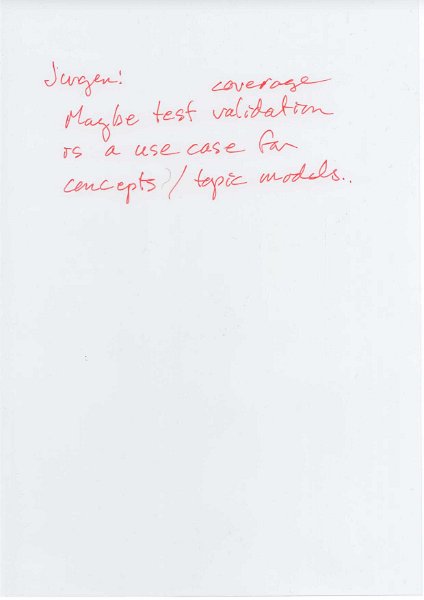 Jurgen: coverage
Maybe test validation
is a use case for
concepts / topic models..